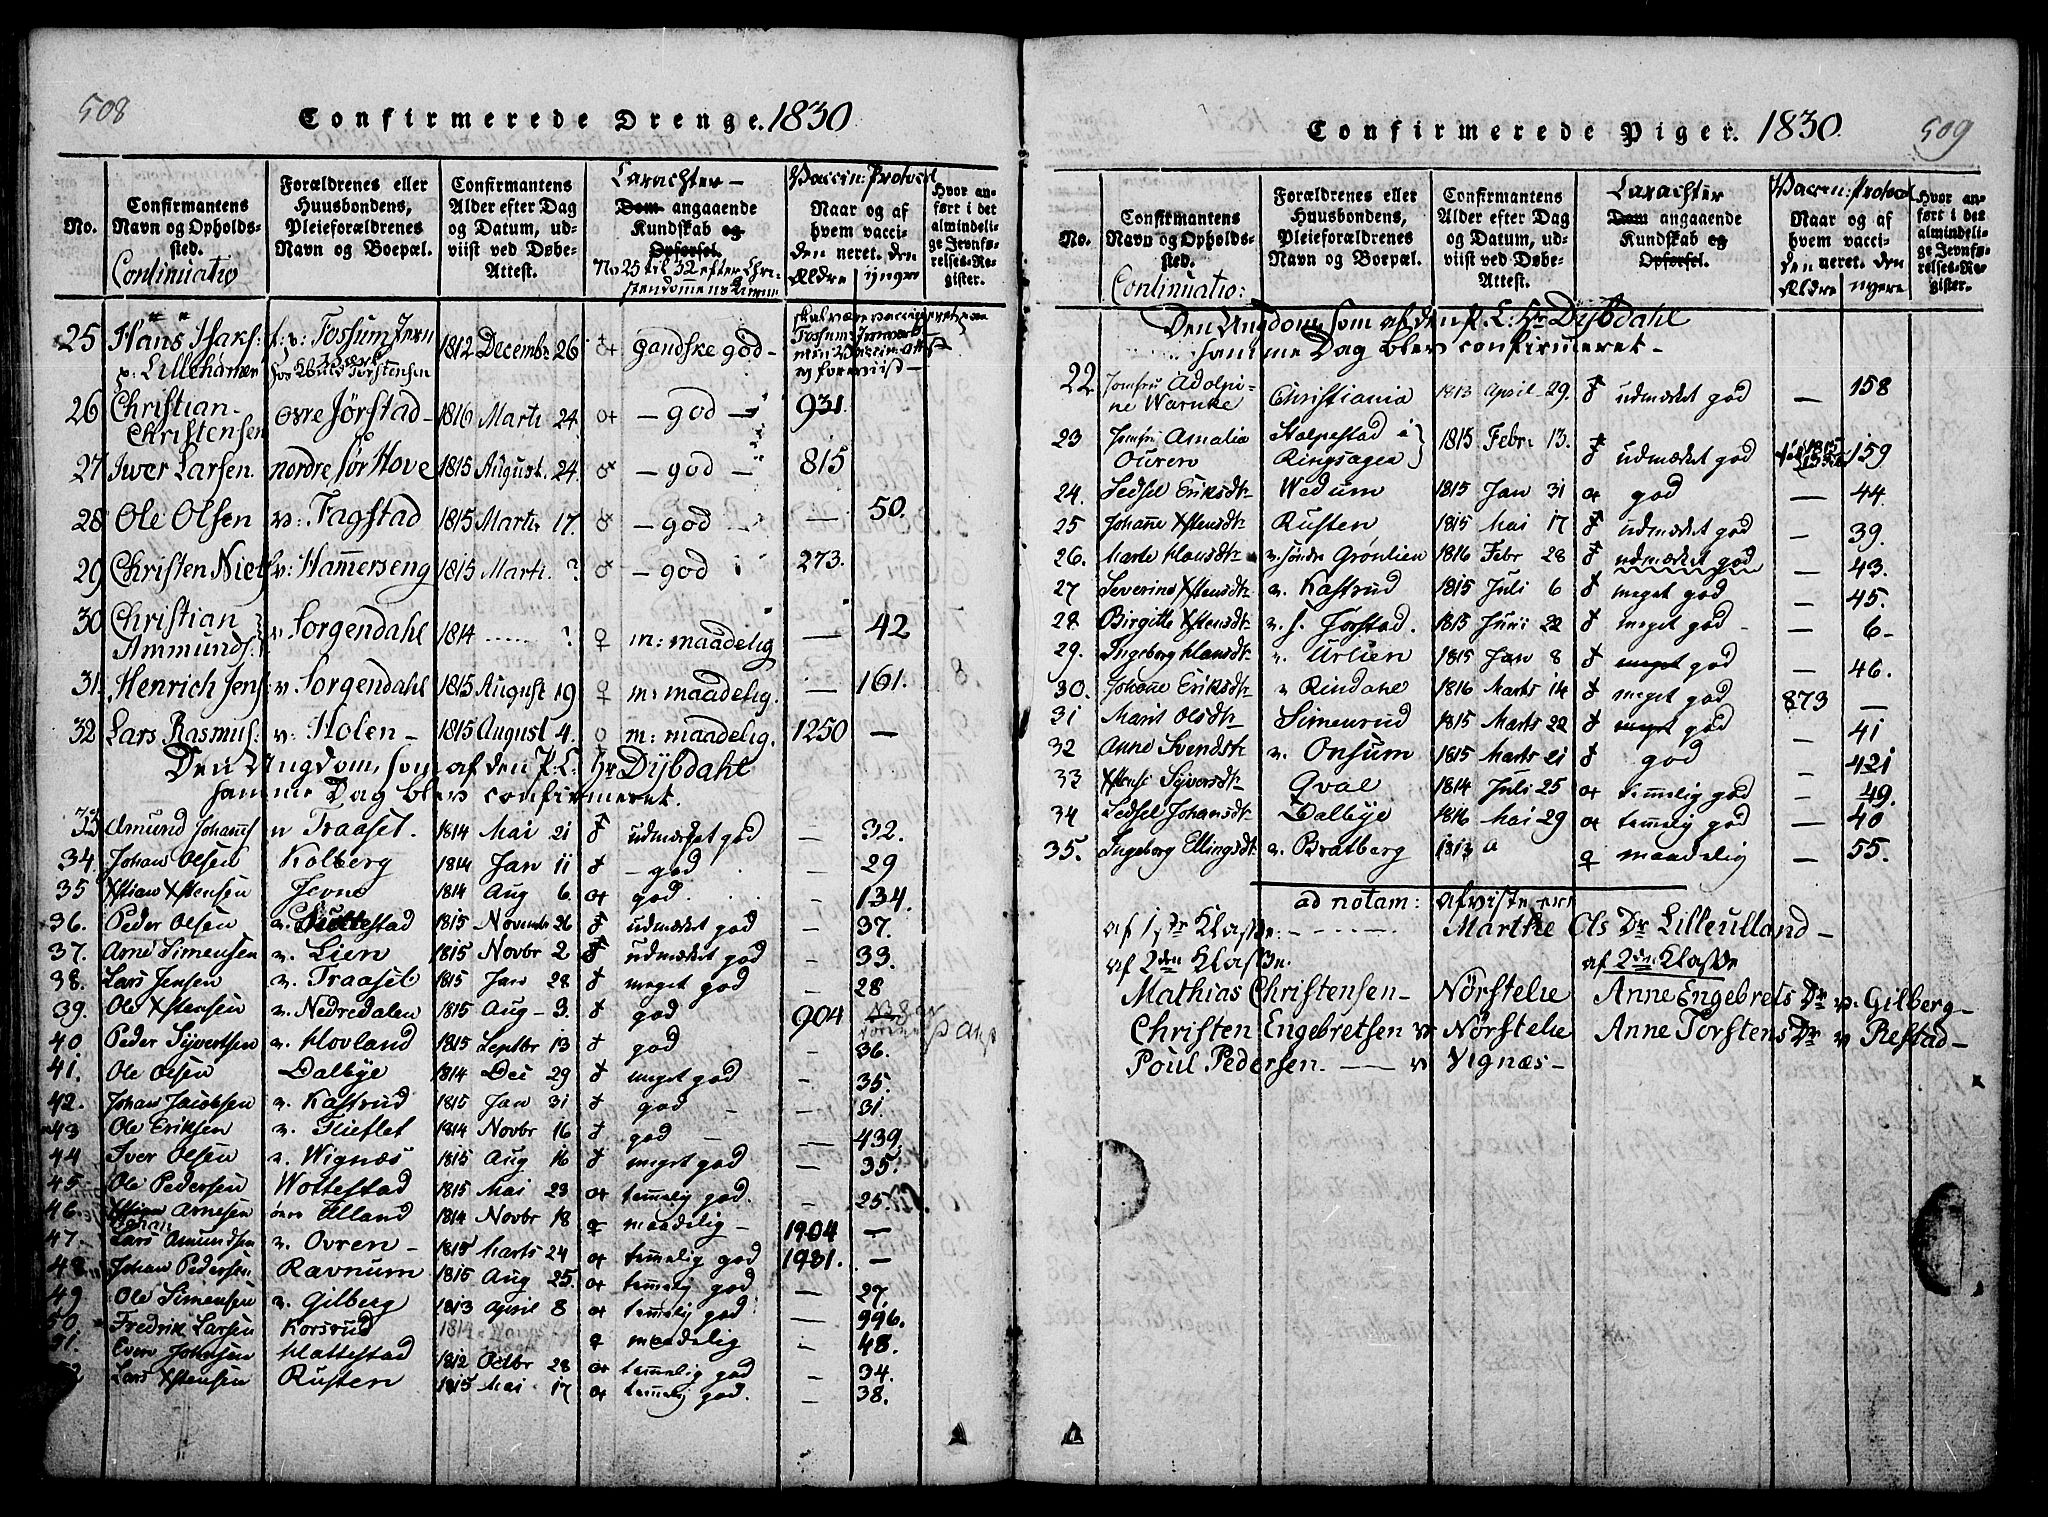 508
Confirmerede Drenge. 1830
No.
Confirmantens Navn og Opholdssted. Continuatio
Forældrenes eller Huusbondens, Pleieforældrenes Navn og Boepæl.
Confirmantens Alder efter Dag og Datum, udviist ved Døbe-Attest.
Carachter – Dom angaaende Kundskab og Opførsel. No 25 til 32 efter Christendommens
Vaccin: Protocol Naar og af hvem vaccineret. den Ældre den yngre
Hvor anført i det almindelige Jevnførelses-Register.
25 Hans Isaks: f: v: Tossum Jern 1812 Decembr 26 gandske god –
p: Lillehamer
26 Christian Christensen øvre Jørstad – 1816 Marti 24 – god – 931.
27 Iwer Larsen. nordre Sør Hove 1815 August. 24. – god – 815
28 Ole Olsen v: Fagstad 1815 Marti 17. – god – — 50.
29 Christen Niels v: Hammerseng 1815 Marti. ? – god 273.
30 Christian Ammunds: v Sorgendahl 1814 ...... ? m: maadelig — 42
31. Henrich Jens: v. Sorgendahl 1815 August 19 m: maadelig. — 161.
32 Lars Rasmus: v: Holen – 1815 August 4. m: maadelig. 1250 —
Den Ungdom, som af den P: C: Hr Dybdahl
samme Dag blev confirmeret.
33 Amund Johanns v Traaset. 1814 Mai 21 udmærket god — 32.
34. Johan Olsen Kolberg 1814 Jan 11 – god — 29
35 Xstian Xstensen Jevne 1814 Aug 6. god. — 134.
36. Peder Olsen 1815 Novembr 26 udmærket god — 37.
37. Arne Simensen v. Lien 1815 Novbr 2 udmærket god — 33.
38. Lars Jensen v. Traaset 1815 Jan 28 meget god — 28
39. Ole Xstensen v. Nedredalen 1815 Aug – 3. god 904
40 Peder Syvertsen v. Hovland 1815 Septbr 13 god — 36.
41. Ole Olsen Dalbye 1814 Dec 29 meget god — 35.
42. Johan Jacobsen v. Kastrud 1815 Jan 31 god – — 31.
43 Ole Eriksen v. Flieflet 1814 Novbr 16 god — 439.
44 Iver Olsen v. Wignæs 1815 Aug 16 meget god — 35.
45. Ole Pedersen Wottestad 1815 Mai 23 temelig god. — 25.
46. Xstian Arnesen øvre Ulland 1814 Novbr 18 maadelig – 1904 —
47. Johan Lars Amundsen v. Ovren – 1815 Marts 24 temelig god 1931. —
48 Johan Pedersen Ravnum 1815 Aug 25. temelig god — 27.
49 Ole Simensen v. Gilberg 1813 April 8 temelig god — 996.
50 Fredrik Larsen Korsrud 1814 maadelig — 48.
51. Even Johnsen Hattestad 1812 Octbr 28 temmelig god — 34.
52 Lars Xstensen Rusten 1815 Mai 17 temelig god. — 38.
Confirmerede Piger. 1830. 509
No.
Confirmantens Navn og Opholdssted. Continuatio:
Forældrenes eller Huusbondens, Pleieforældrenes Navn og Boepæl.
Confirmantens Alder efter Dag og Datum, udviist ved Døbe-Attest.
Carachter Dom angaaende Kundskab og Opførsel.
Vaccin: Protocol Naar og af hvem vaccineret. den Ældre den nyere
Hvor anført i det almindelige Jevnførelses-Register.
Den Ungdom, som af den P. C: Hr Dybdahl
samme Dag blev confirmeret –
22. Jomfru Adolphine Warnke Christiania 1813 April 29. udmærket god — 158
23 Jomfru Amalia Ouren Stolpestad i Ringsager 1815 Febr 13. udmærket god 159
24. Sedsel Eriksdtr Wedum 1815 Jan 31 god — 44.
25 Johane Xstensdtr Rusten 1815 Mai 17 udmærket god — 39.
26. Marte Hansdtr v. søndre Grønlien 1816 Febr 28 udmærket god — 43.
27 Severine Xstensdtr v. Kastrud 1815 Juli 6 meget god — 45.
28 Birgitte Xstensdtr v. s. Jørstad. 1815 Juni 22 meget god – — 6 –
29. Ingeborg Hansdtr v. Urlien 1815 Jan 8 meget god — 46.
30. Johane Eriksdtr v Rindahl 1816 Marts 14 meget god 873 —
31 Marit Olsdtr Simenrud 1815 Marts 22 meget god — 41
32 Anne Svendsdtr v. Onsum 1815 Marts 21 god — 421
33 Xstense Syversdtr Qval 1814 Juli 25 temelig god — 49.
34 Sedsel Johansdtr Dalbye 1816 Mai 29 temelig god — 40
35. Ingeborg Ellingsdtr v. Bratberg 1813 maadelig — 55.
ad notam: afviste ere
af 1ste Klasse: Marthe Ols Dr Lilleulland –
af 2den Klasse. af 2den Klasse
Mathias Christensen – Nørstelie Anne Engebrets Dr v. Gilberg –
Christen Engebretsen v Nørstelie Anne Torstens Dr v Restad –
Poul Pedersen. — v Vignæs –